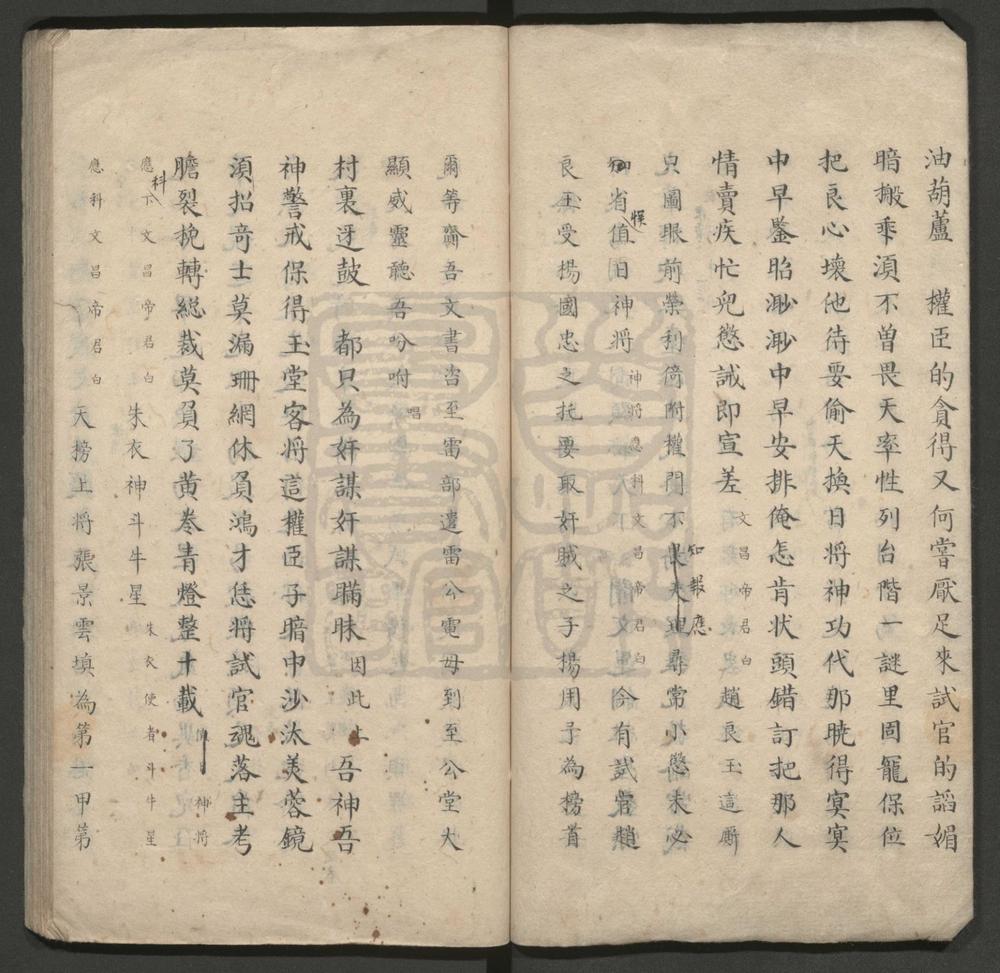 油葫蘆 權臣的貪得又何嘗厭足來試官的謟媚
暗搬乘湏不曽畏天率性列台階一謎里固寵保位
把良心壞他待要偷天換日將神功代那曉得㝠㝠
中早鑒昭渺渺中早安排俺怎肯状頭錯訂把那人
情賣疾忙兜懲誡即宣差 文昌帝君白 趙良玉這厮
只圖眼前榮利倚附權門不畏天理尋常小懲未必
知報應
知省悞值日神將 神將應科文昌帝君白 今有試官趙
良玉受揚國忠之托要取奸賊之子揚用予為榜首
爾等齎吾文書咨至雷部遣雷公電母到至公堂大
顯威靈聽吾吩咐 唱
村裏迓鼓 都只為奸謀奸謀瞞昧因此上吾神吾
神警戒保得玉堂客將這權臣子暗中沙汰芙蓉鏡
湏招竒士莫漏珊網休負鴻才恁將試官魂落主考
膽裂挽轉縂裁莫負了黄卷青燈整十載 神將
應科下文昌帝君白 朱衣神斗牛星 朱衣使者斗牛星
應科文昌帝君白 天榜上將張景雲填為第一甲第